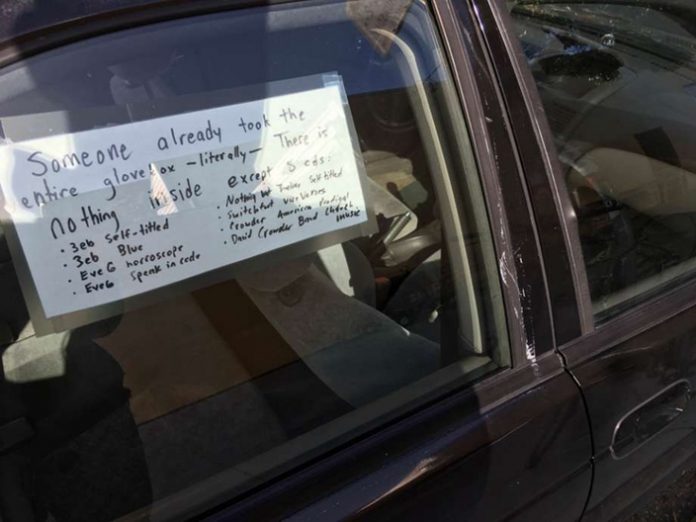 Someone already took the
entire glove ox -literally- There is
nothing inside except 8 cds:
• 3eb self-titled
• 3eb Blue
• Eve 6 horroscope
• Eve6 speak in code
• Nothing but Self titled
• Switchfoot vice verses
• Crowder American Prodigal
• David Crowder Band Church music